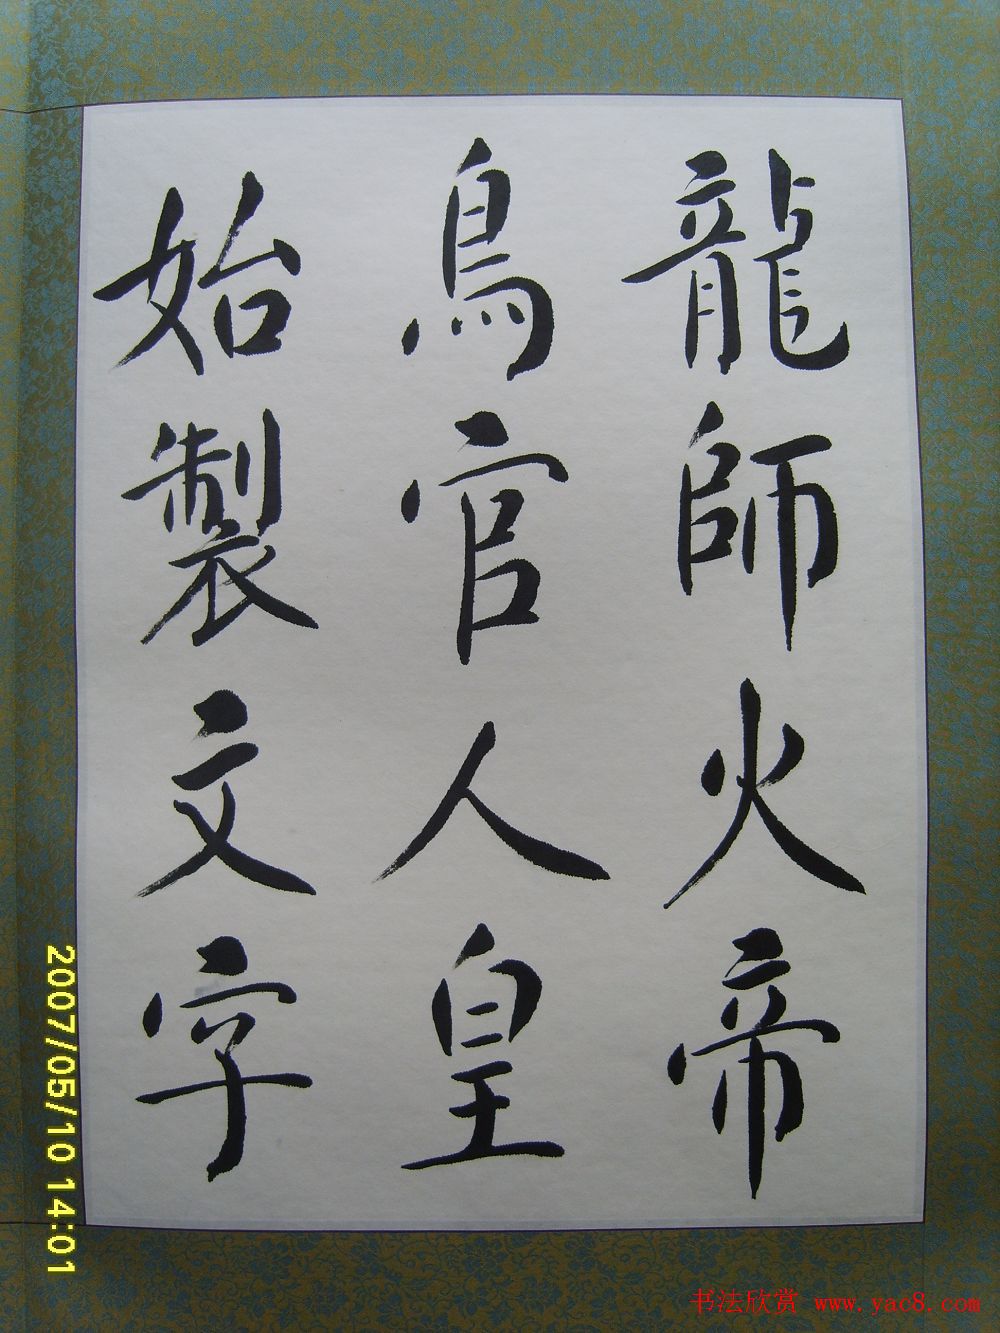 龍師火帝
鳥官人皇
始製文字
2007/05/10 14:01
书法欣赏 www.yac8.com